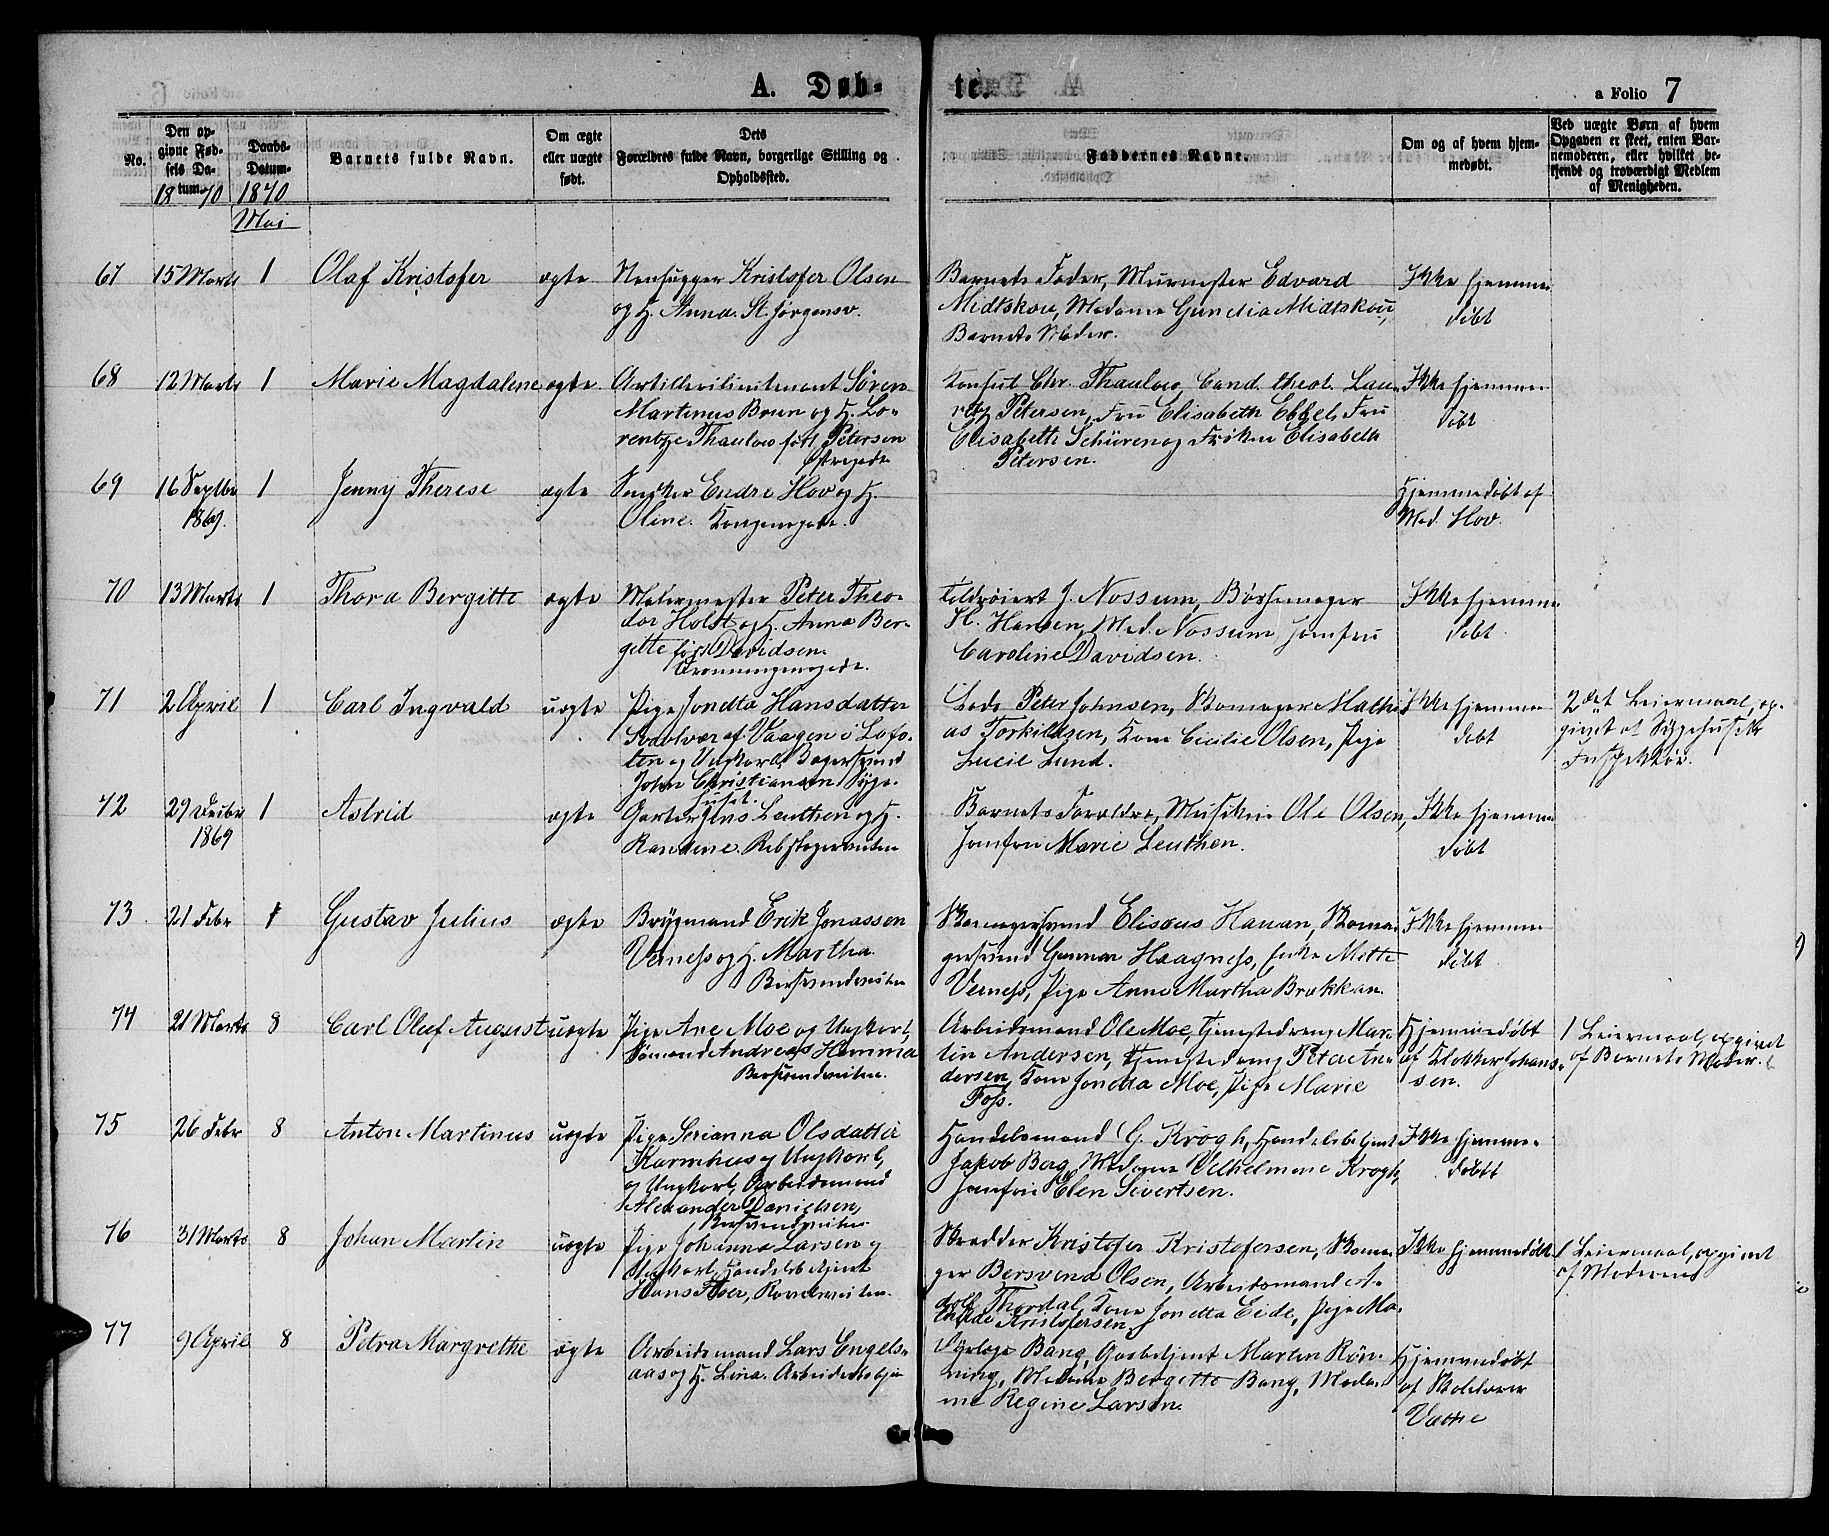 A. Døb-
te.
a Folio 7
No.
Den op-
givne Fød-
sels Da-
tum.
1870
Daabs-
Datum
1870
Barnets fulde Navn.
Om ægte
eller uægte
født.
Dets
Forældres fulde Navn, borgerlige Stilling og
Opholdssted.
Faddernes Navne.
Om og af hvem hjem-
medøbt.
Ved uægte Børn af hvem
Opgaven er skeet, enten Bar-
nemoderen, eller hvilket be-
kjendt og troværdigt Medlem
af Menigheden.
Mai
67 15 Marts 1 Olaf Kristofer ægte
Stenhugger Kristofer Olsen
og H. Anna St. Jørgensv.
Barnets Fader, Murmester Edvard
Midtskou, Madame Gundia Midtskou,
Barnets Moder.
Ikke hjemme
døbt
68 12 Marts 1 Marie Magdalene ægte
Artillerilieutenant Søren
Martinus Brun og H. Lo-
rentze Thaulow født Petersen
Konsul Chr. Thaulow, Cand. theol. Lau-
ritz Petersen, Fru Elisabeth Ebbel, Fru
Elisabeth Schüren og Frøken Elisabeth
Petersen.
Ikke hjemme
døbt
69 16 Septbr 1869. 1 Jenny Therese ægte
Endre Hov og H.
Oline. Kongensgade.
Hjemmedøbt af
Mad. Hov.
70 13 Marts 1 Thora Bergitte ægte
Malermester Peter Theo-
dor Holst og H. Anna Ber-
gitte født Davidsen.
Dronningensgade.
J. Nossum, Bøssemager
Hansen, Mad. Nossum, Jomfru
Caroline Davidsen.
Ikke hjemme
døbt.
71 2 April 1 Carl Ingvald uægte
Pige Jondta Hansdatter
Svolvær af Vaagen i Lofo-
ten og Ungkarl Bagersvend
John Christiansen Syge-
huset.
Peter Johnsen, Skomager Mathi-
as Torkildsen, Kone Cicilie Olsen, Pige
Lucie Lund.
Ikke hjemme
døbt
2det Leiermaal, op-
givet af Sygehusets
Inspektør.
72 29 Decbr 1869 1 Astrid ægte
Gartner Jens Leuthen og H.
Randine. Rebslagerveiten
Barnets Forældre, Musiker Ole Olsen,
Jomfru Marie Leuthen.
Ikke hjemme
døbt
73 21 Febr 1 Gustav Julius ægte
Brygmand Erik Jonassen
Verness og H. Martha.
Bersvendveiten
Skomagersvend Elisæus Hauan, Skoma-
gersvend Gunnar Haagness, Mette
Verness, Pige Anne Martha Brækkan.
Ikke hjemme
døbt
74 21 Marts 8 Carl Oluf August uægte
Pige Ane Moe og Ungkarl,
Sømand Andreas Hemma
Bersvendveiten.
Arbeidsmand Ole Moe, Tjenestedreng Mar-
tin Andersen, Tjenestedreng Petter An-
dersen, Kone Jondta Moe, Pige Marie
Foss.
Hjemmedøbt
af Klokker Johans-
sen.
1 Leiermaal, opgivet
af Barnets Moder.
75 26 Febr 8 Anton Martinus uægte
Pige Serianna Olsdatter
Karmhus og Ungkarl,
og Ungkarl, Arbeidsmand
Alexander Danielsen,
Bersvendveiten.
Handelsmand G. Krogh, Handelsbetjent
Jakob Berg, Madame Velhelmine Krogh,
Jomfru Elen Sivertsen.
Ikke hjemme-
døbt
76 31 Marts 8 Johan Martin uægte
Pige Johanna Larsen og
Ungkarl Handelsbetjent
Hans Roveldsveiten.
Skrædder Kristofer Kristofersen, Skoma-
ger Bersvend Olsen, Arbeidsmand A-
dolf Thordal, Kone Jondta Eide, Pige Ma-
thilde Kristofersen.
Ikke hjemmedøbt
1 Leiermaal, opgivet
af Moderen
77 9 April 8 Petra Margrethe ægte
Arbeidsmand Lars Engels-
aas og H. Lina.
Dyrlæge Bang, Gaardbetjent Martin Røn-
ning, Madame Bergitte Bang, Mada-
me Regine Larsen.
Hjemmedøbt
af Skolelærer
Vatne